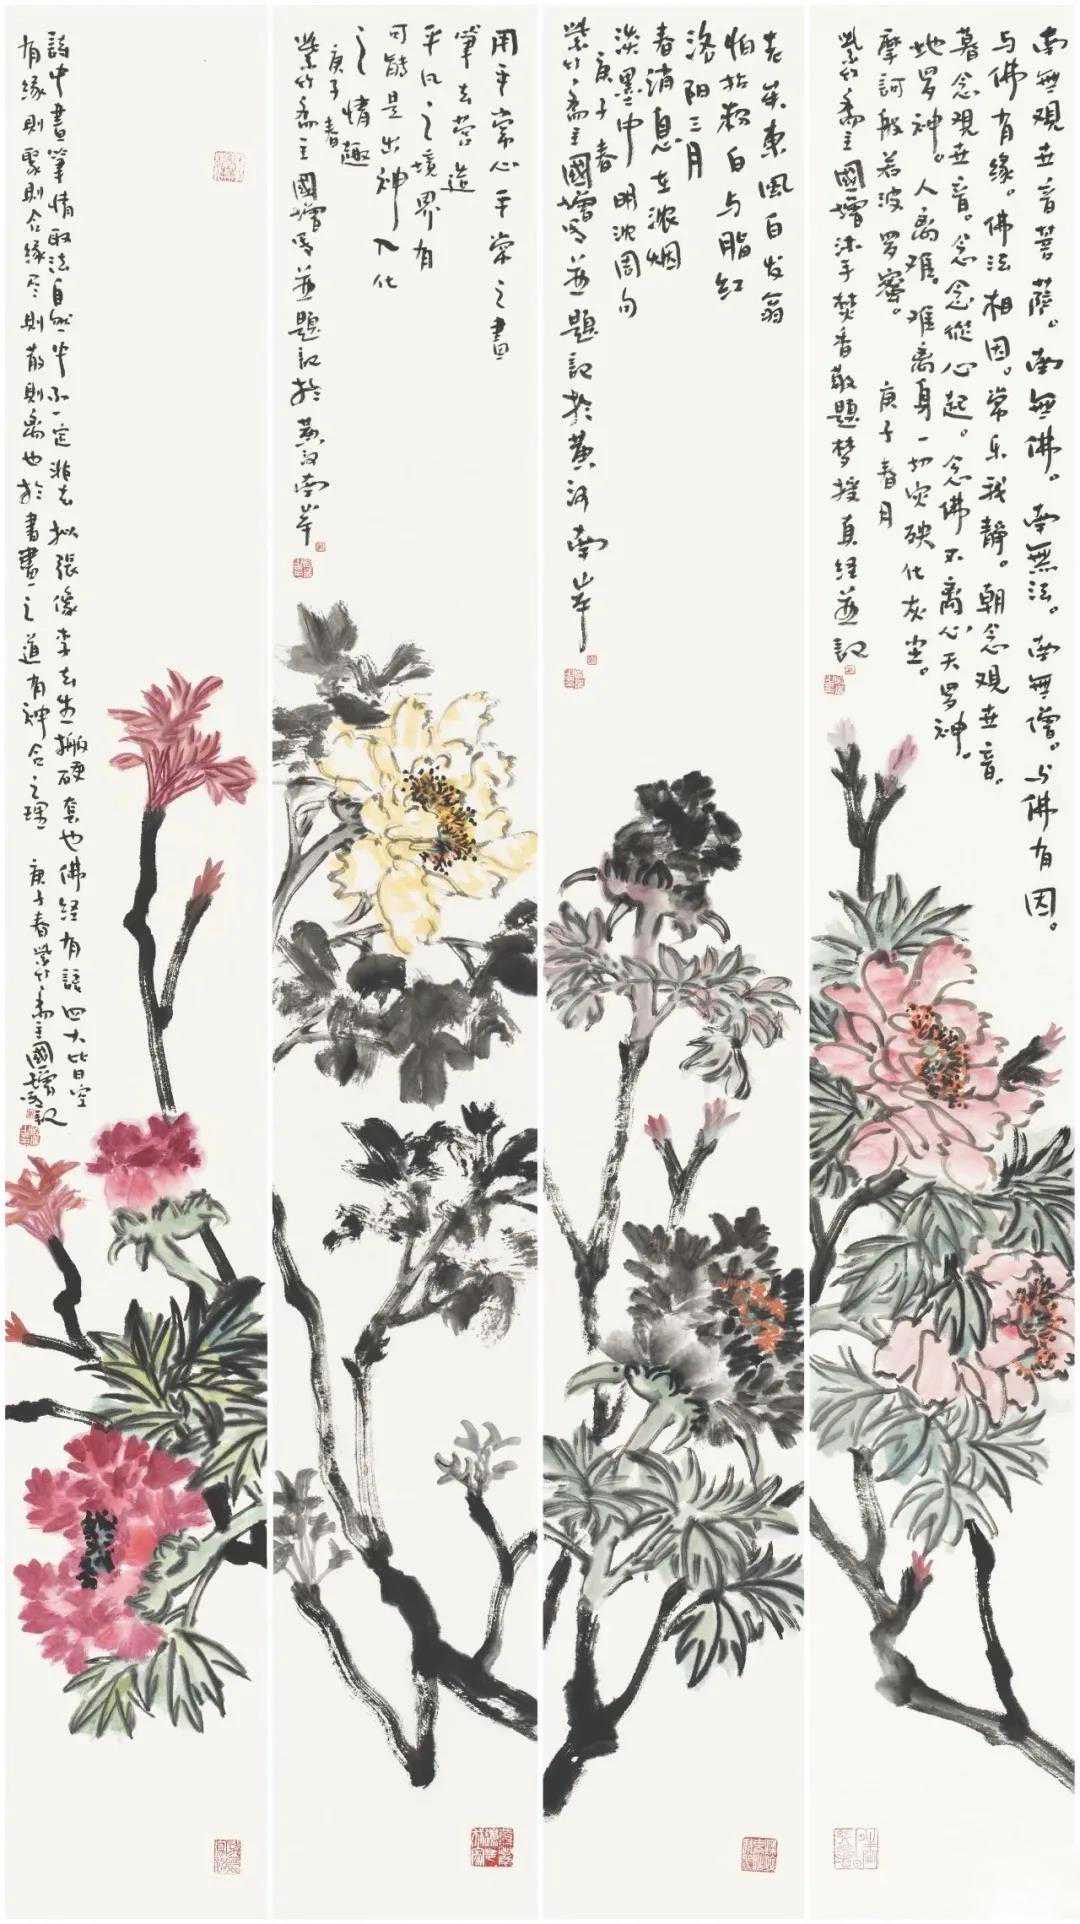 南無觀世音菩薩。南無佛。南無法。南無僧。与佛有因。
与佛有缘。佛法相因。常乐我静。朝念觀世音。
暮念觀世音。念念從心起。念佛不離心。天罗神。
地罗神。人离难。难离身一切灾殃化灰尘。
摩訶般若波罗蜜。 庚子春月
紫竹斋主國增沐手焚香敬題梦授真经並記
老矣東風白发翁
怕拈粉白与脂红
洛阳三月
春消息在浓烟
淡墨中 明沈周句
庚子春
紫竹斋主國增写並題記於黄河南岸
用平常心平常之畫
筆去营造
平凡之境界有
可能是出神入化
之情趣
庚子春
紫竹斋主國增写並題記於黄河南岸
詩中畫筆情取法自然 不一定非去拟張像李去生搬硬套也佛经有語四大皆空
有缘則聚則合缘尽則散則离也於書畫之道有神合之理 庚子春紫竹斋主國增写記